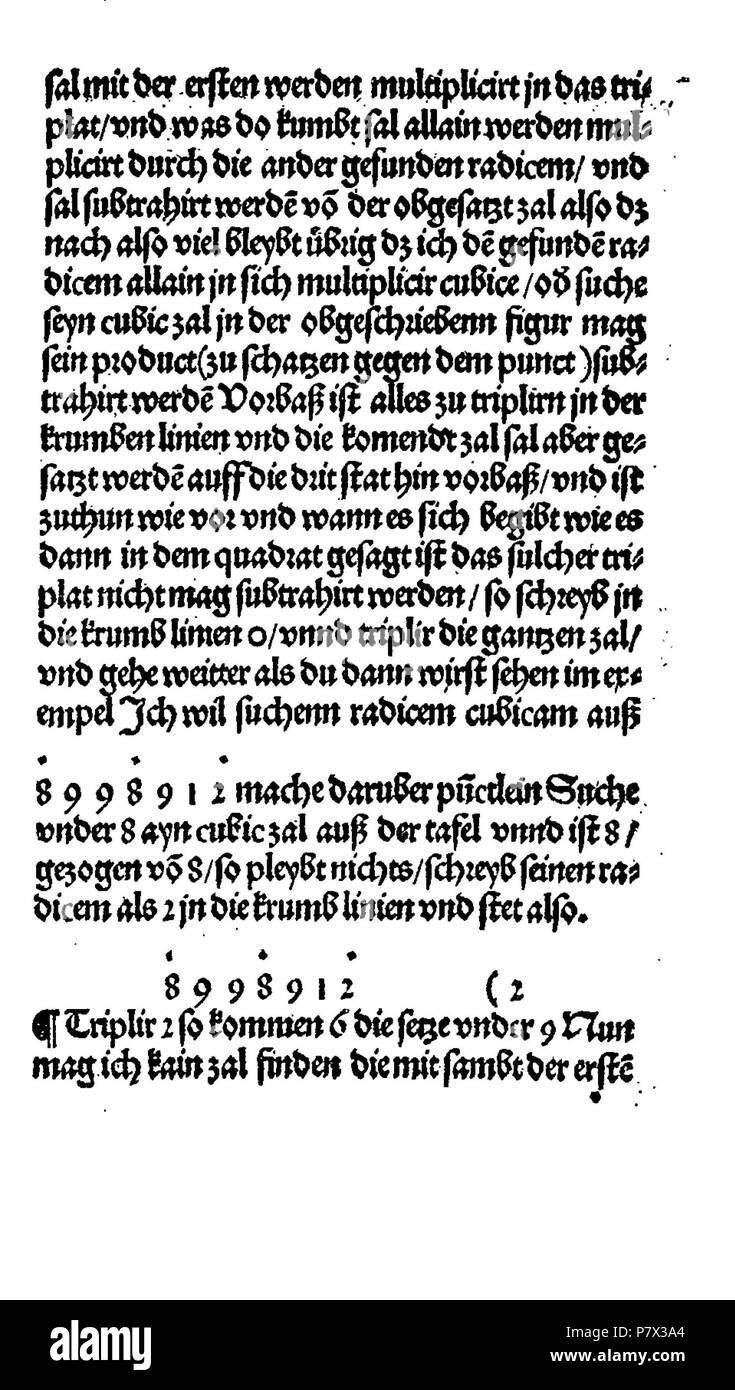 sal mit der ersten werden multiplicirt jn das tri⸗
plat/vnd was do kumbt sal allain werden mul⸗
plicirt durch die ander gefunden radicem/ vnd
sal subtrahirt werdē vō der obgesatzt zal also dz
nach also viel bleybt übrig dz ich dē gefundē ra⸗
dicem allain jn sich multiplicir cubice/od̕ suche
seyn cubic zal jn der obgeschriebenn figur mag
sein product(zu schatzen gegen dem punct)sub⸗
trahirt werdē Vorbaß ist alles zu triplirn jn der
krumben linien vnd die komendt zal sal aber ge⸗
satzt werdē auff die drit stat hin vorbaß/vnd ist
zuthun wie vor vnd wann es sich begibt wie es
dann in dem quadrat gesagt ist das sulcher tri⸗
plat nicht mag subtrahirt werden/ so schreyb jn
die krumb linien 0/vnnd triplir die gantzen zal/
vnd gehe weitter als du dann wirst sehen im ex⸗
empel Jch wil suchenn radicem cubicam auß
8 9 9 8 9 1 2 mache daruber pūctlein Suche
vnder 8 ayn cubic zal auß der tafel vnnd ist 8/
gezogen vō 8/so pleybt nichts/schreyb seinen ra⸗
dicem als 2 jn die krumb linien vnd stet also.
8 9 9 8 9 1 2 (2
¶ Triplir 2 so kommen 6 die setze vnder 9 Nun
mag ich kain zal finden die mit sambt der erstē
alamy
Image ID: P7X3A4
www.alamy.com